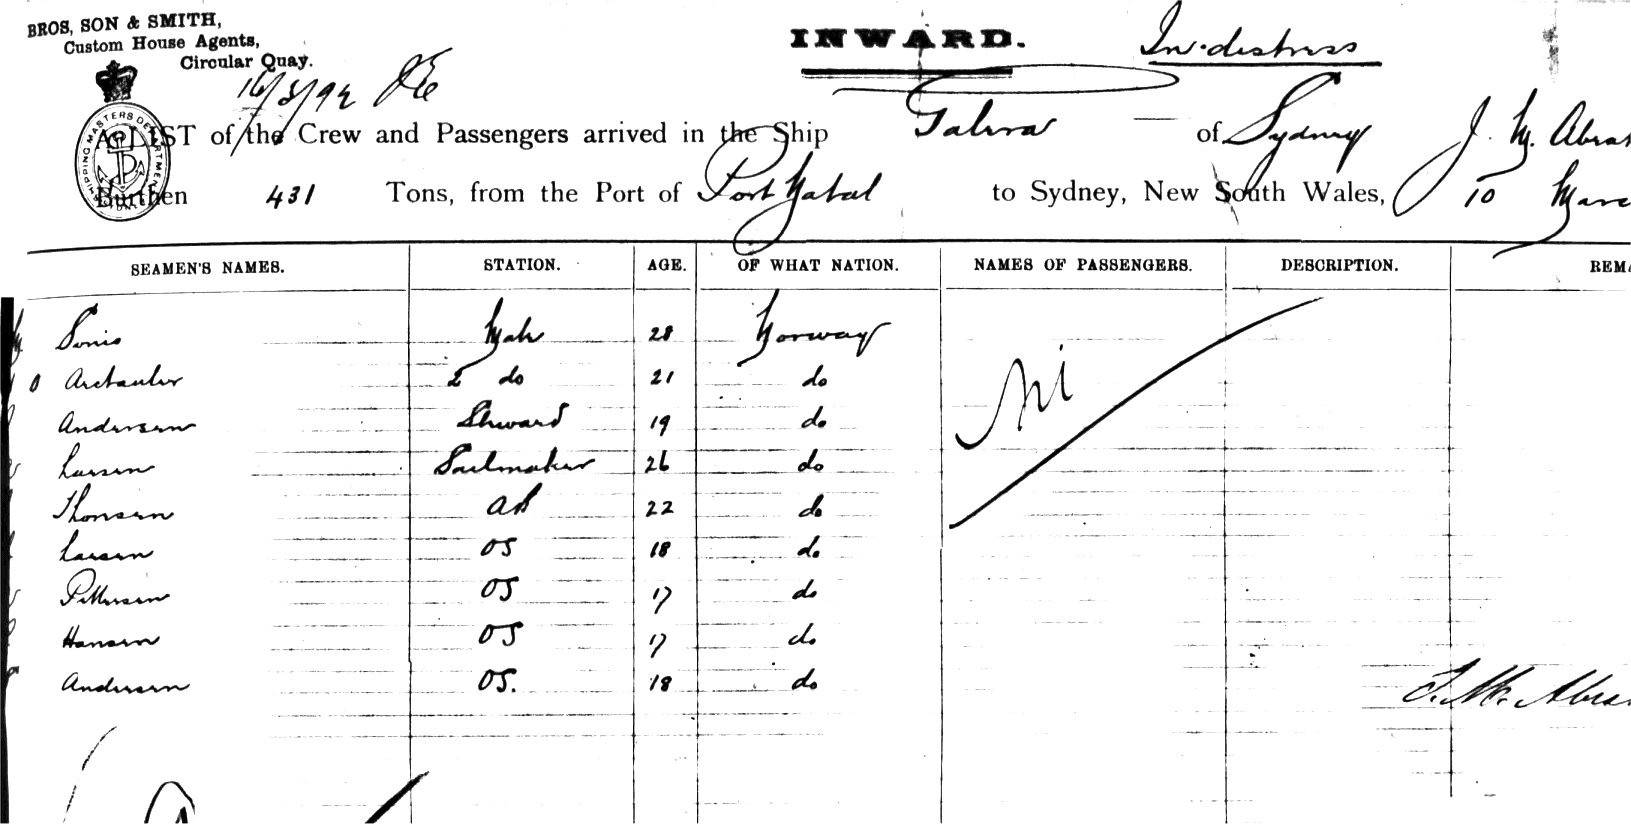 BROS, SON & SMITH,
Custom House Agents,
Circular Quay.
INWARD.
In distress
16/3/92
A LIST of the Crew and Passengers arrived in the Ship of Sydney J. M. Abra
Burthen 431 Tons, from the Port of Port Natal to Sydney, New South Wales, 10 Marc
SHIPPING MASTERS DEPARTMENT
SEAMEN'S NAMES. STATION. AGE. OF WHAT NATION. NAMES OF PASSENGERS. DESCRIPTION. REMA
Mate 28 Norway
2 do 21 do
Andersen Steward 19 do
Larsen Sailmaker 26 do
Thonsen AB 22 do
Larsen OS 18 do
Pettersen OS 17 do
Hansen OS 17 do
Andersen OS. 18 do
Nil
J. M. Abra